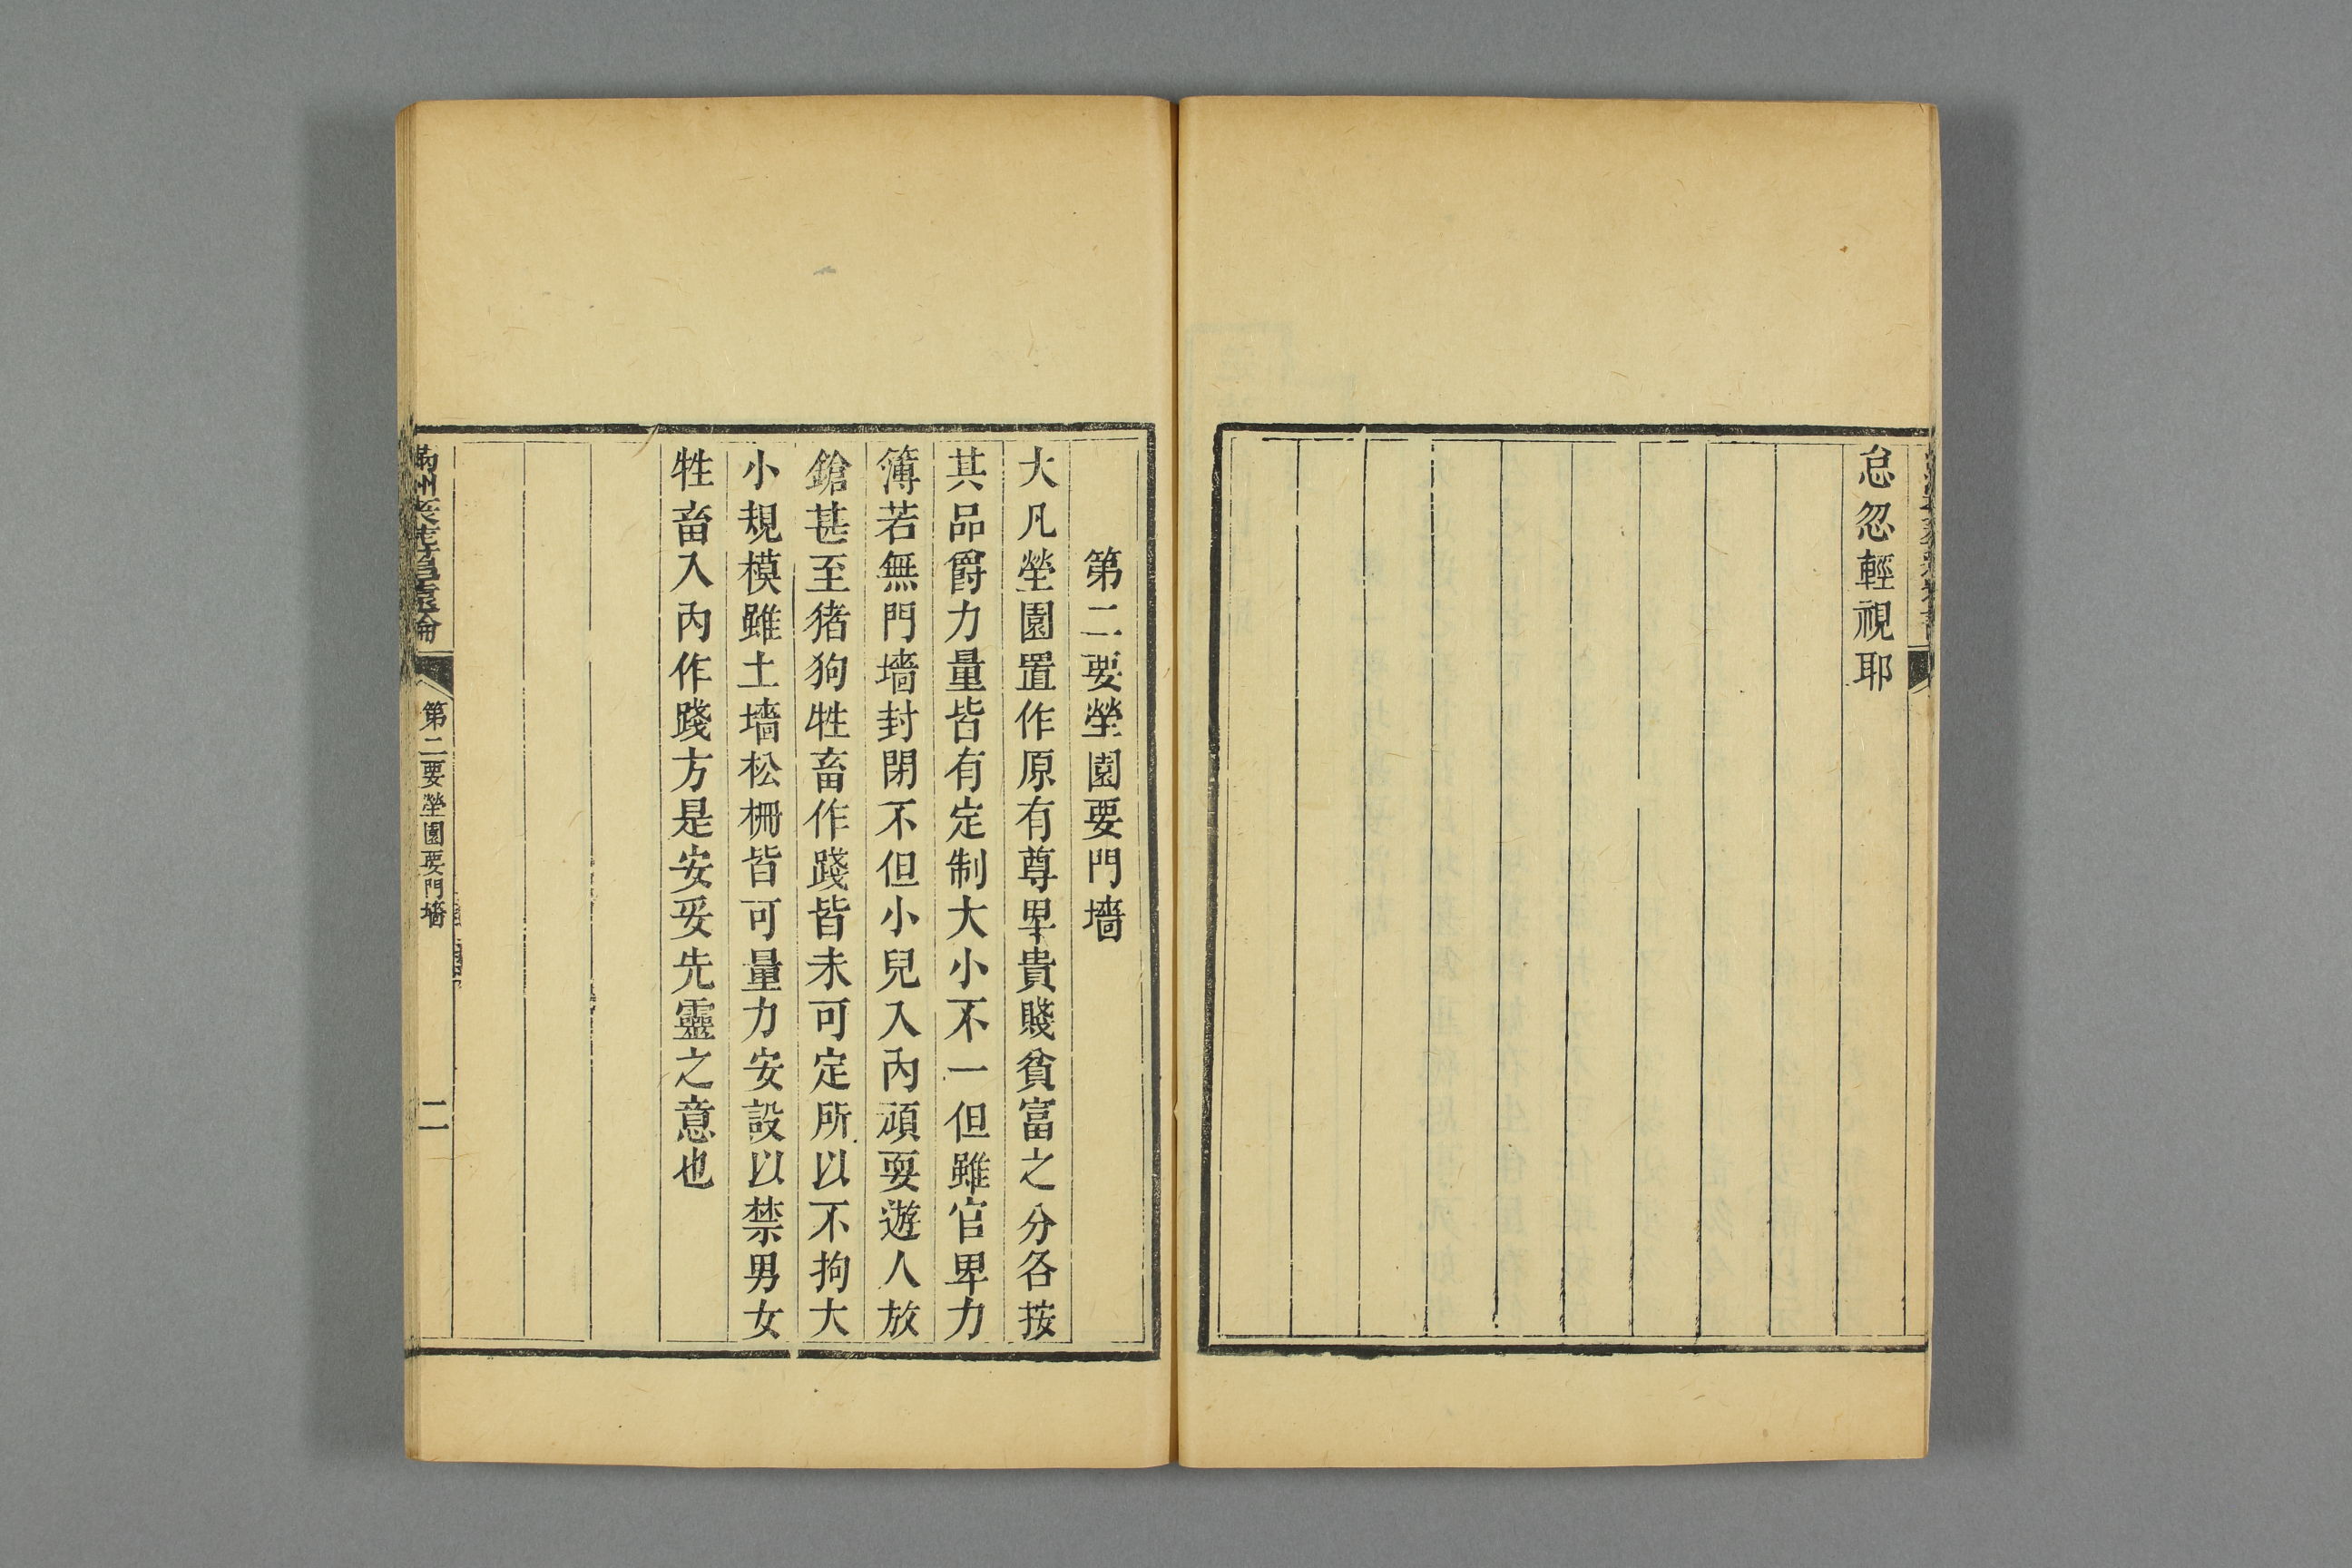 怠忽輕視耶
第二要塋園要門墻
大凡塋園置作原有尊卑貴賤貧富之分各按
其品爵力量皆有定制大小不一但雖官卑力
簿若無門墻封閉不但小兒入內頑耍遊人放
鎗甚至猪狗牲畜作踐皆未可定所以不拘大
小規模雖土墻松柵皆可量力安設以禁男女
牲畜入內作踐方是安妥先靈之意也
第二要塋園要門墻
二